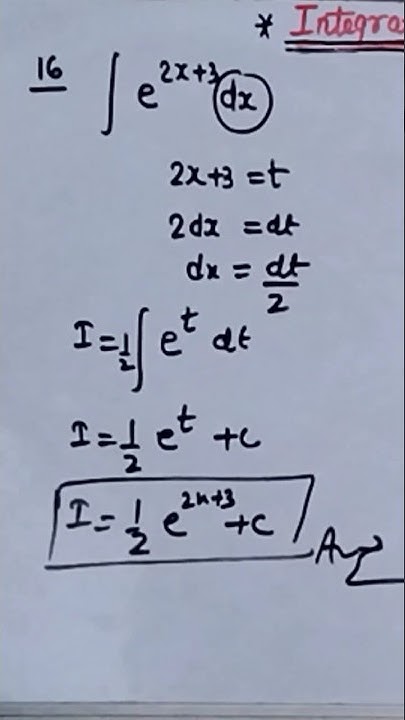 * Integra
16 ∫ e^{2x+3} dx
2x+3 = t
2dx = dt
dx = dt/2
I = 1/2 ∫ e^t dt
I = 1/2 e^t + c
I = 1/2 e^{2x+3} + c